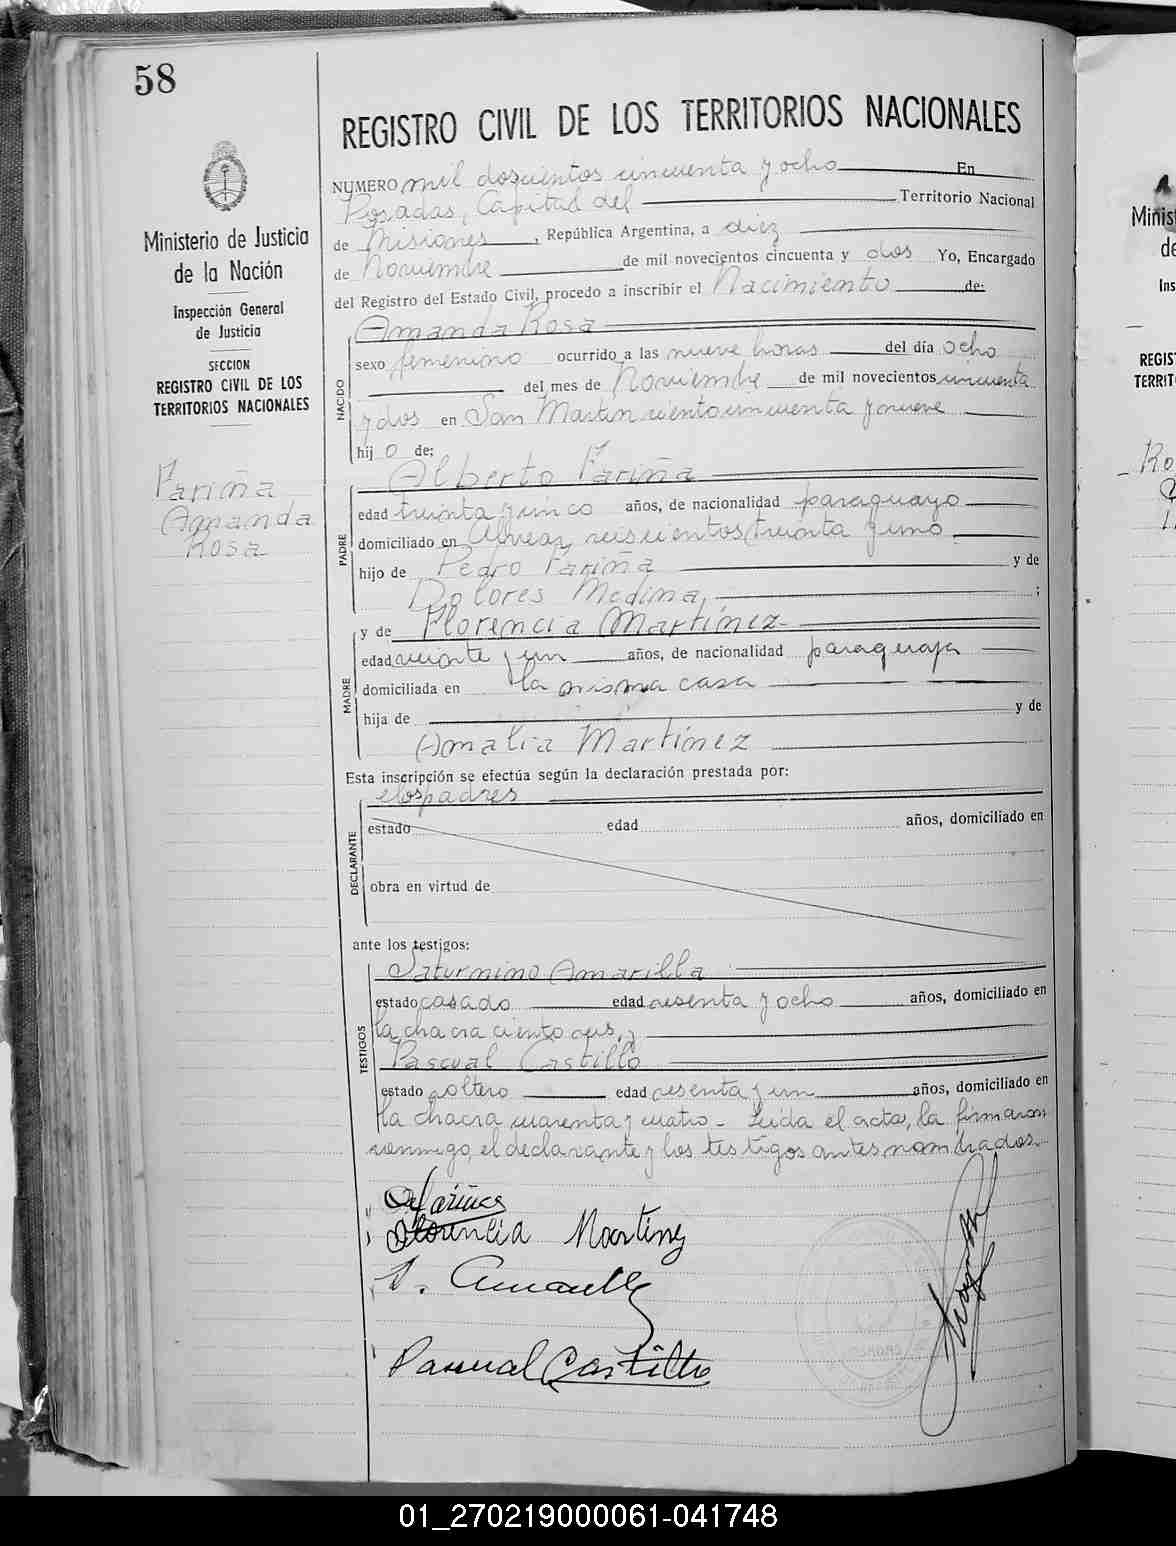 58
REGISTRO CIVIL DE LOS TERRITORIOS NACIONALES
NUMERO mil doscientos cincuenta y ocho En
Posadas, Capital del Territorio Nacional
de Misiones, República Argentina, a diez
de Noviembre de mil novecientos cincuenta y dos Yo, Encargado
del Registro del Estado Civil, procedo a inscribir el Nacimiento de:
Amanda Rosa
sexo femenino ocurrido a las nueve horas del día ocho
del mes de Noviembre de mil novecientos cincuenta
y dos en San Martin ciento cincuenta y nueve
hij o de:
Alberto Fariña
edad treinta y cinco años, de nacionalidad paraguayo
domiciliado en Alvear, seiscientos treinta y uno
hijo de Pedro Fariña y de
Dolores Medina, ;
y de Florencia Martínez
edad veinte y un años, de nacionalidad paraguaya
domiciliada en la misma casa
hija de y de
Amalia Martínez
Esta inscripción se efectúa según la declaración prestada por:
los padres
estado edad años, domiciliado en
obra en virtud de
ante los testigos:
Saturnino Amarilla
estado casado edad sesenta y ocho años, domiciliado en
la chacra ciento seis, y
Pascual Castillo
estado soltero edad sesenta y un años, domiciliado en
la chacra cuarenta y cuatro. Leída el acta, la firmaron
conmigo, el declarante y los testigos antes nombrados.
Fariña
Florencia Martinez
Pascual Castillo
NACIDO
PADRE
MADRE
DECLARANTE
TESTIGOS
Ministerio de Justicia
de la Nación
Inspección General
de Justicia
SECCION
REGISTRO CIVIL DE LOS
TERRITORIOS NACIONALES
Fariña
Amanda
Rosa
Minist
de
Ins
REGIS
TERRIT
Ro
01_270219000061-041748